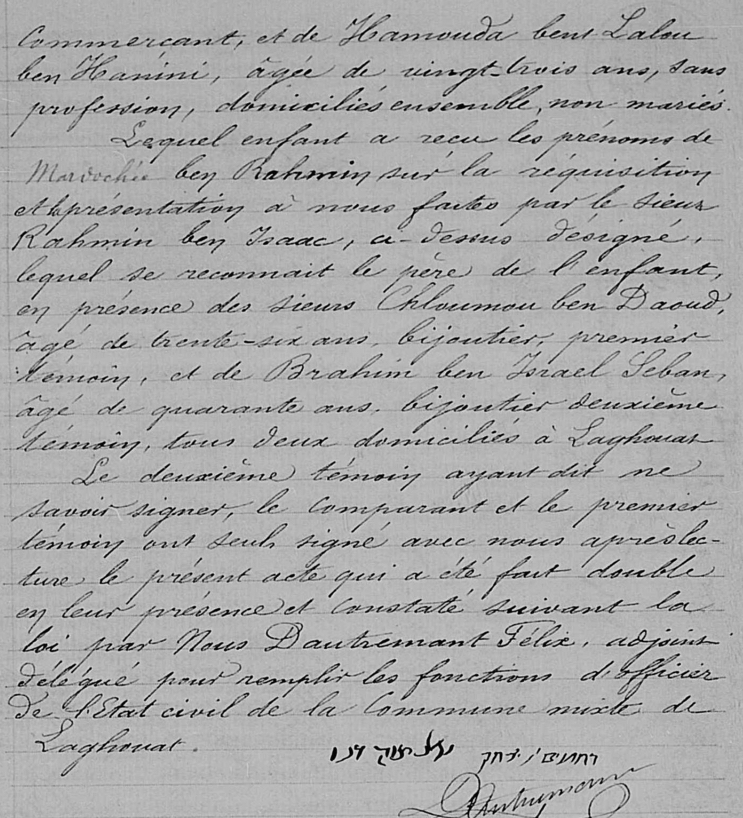 Commerçant, et de Hamouda bent Lalou
ben Hanini, âgée de vingt-trois ans, sans
profession, domiciliés ensemble, non mariés.
Lequel enfant a reçu les prénoms de
Mardochée ben Rahmin sur la réquisition
et la présentation à nous faites par le sieur
Rahmin ben Isaac, ci-dessus désigné,
lequel se reconnait le père de l'enfant,
en présence des sieurs Chloumou ben Daoud,
âgé de trente-six ans, bijoutier, premier
témoin, et de Brahim ben Israel Seban,
âgé de quarante ans, bijoutier deuxième
témoin, tous deux domiciliés à Laghouat
Le deuxième témoin ayant dit ne
savoir signer, le comparant et le premier
témoin ont seuls signé avec nous après lec-
ture le présent acte qui a été fait double
en leur présence et constaté suivant la
loi par Nous Dautremant Félix, adjoint
délégué pour remplir les fonctions d'officier
de l'Etat civil de la Commune mixte de
Laghouat.
Dautremant